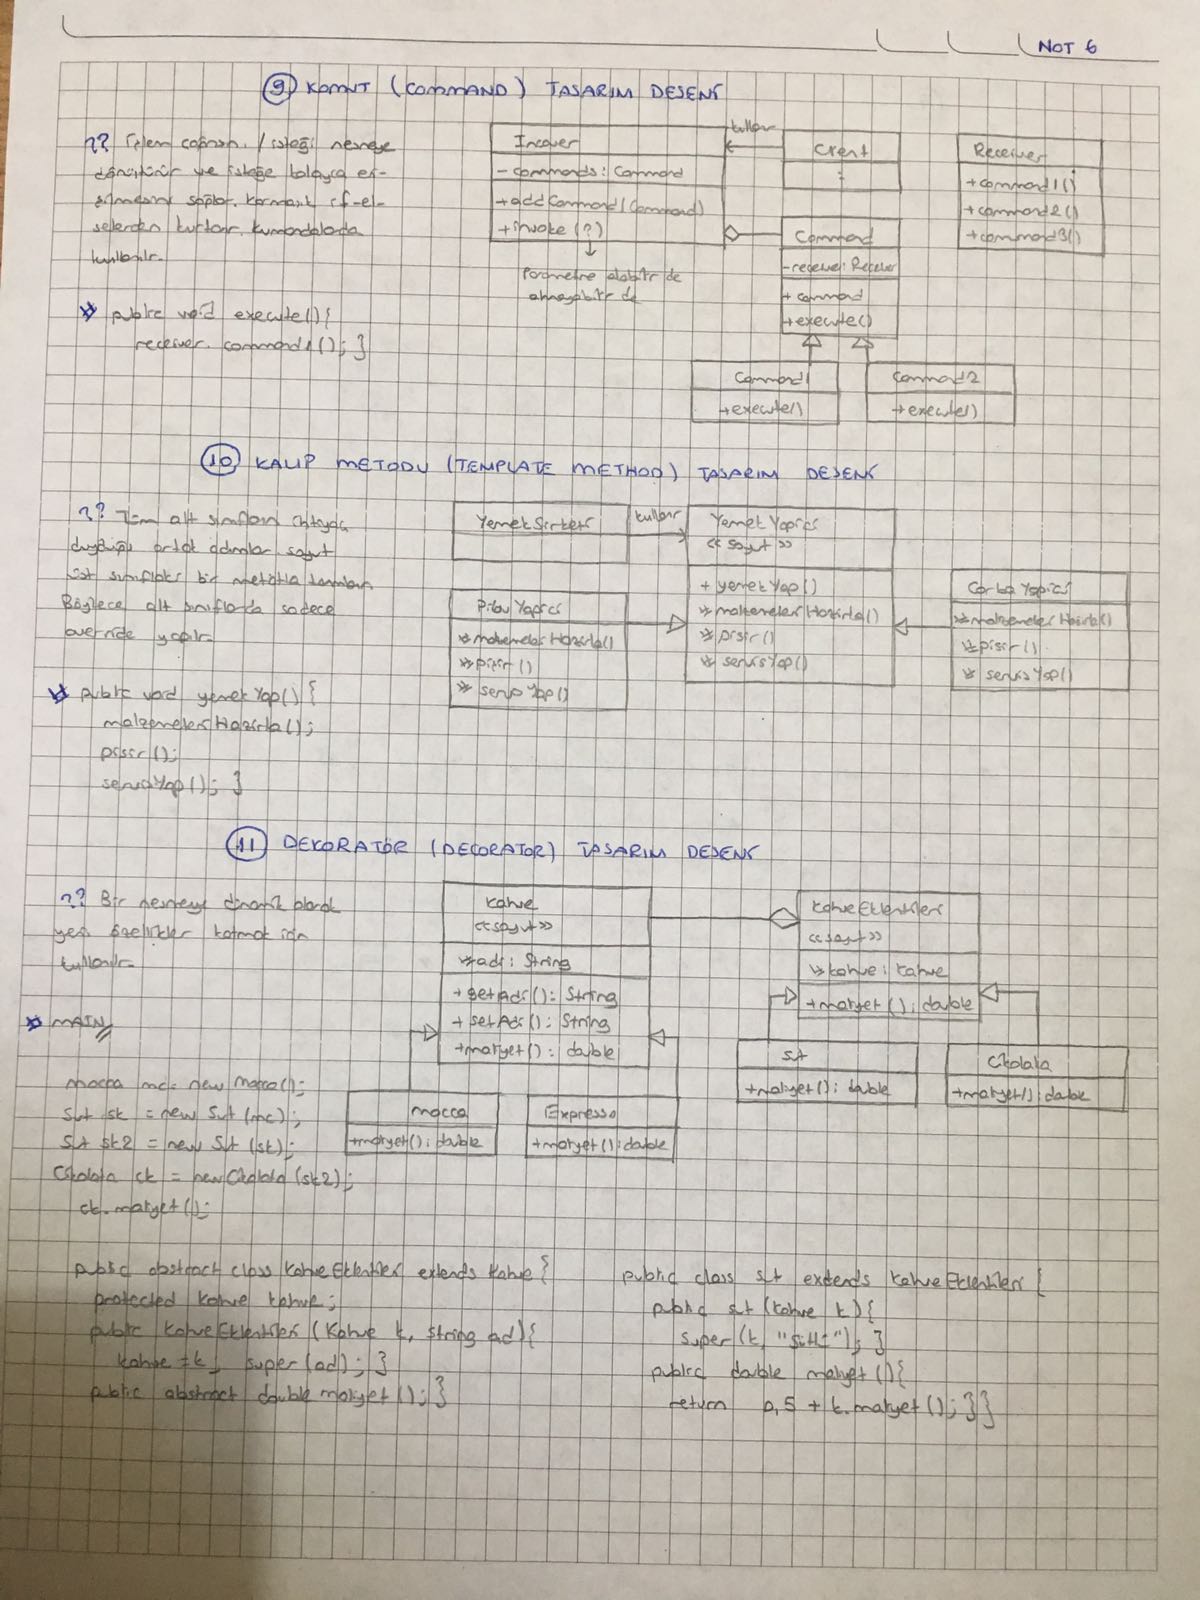 NOT 6
9 KOMUT (COMMAND) TASARIM DESENİ
?? İşlem çağrısını / isteği nesneye
dönüştürür ve isteğe kolayca er-
işilmesini sağlar. Karmaşık if-el-
selerden kurtarır. Kumandalarda
kullanılır.
* public void execute(){
receiver.command1(); }
Invoker
- commands: Command
+ addCommand(Command)
+ invoke(?)
Parametre alabilir de
almayabilir de
kullanır
Client
:
Receiver
+ command1()
+ command2()
+ command3()
Command
- receiver: Receiver
+ command
+ execute()
Command1
+ execute()
Command2
+ execute()
10 KALIP METODU (TEMPLATE METHOD) TASARIM DESENİ
?? Tüm alt sınıfların ihtiyaç
duyduğu ortak adımlar, soyut
üst sınıftaki bir metotla tanımlanır.
Böylece alt sınıflarda sadece
override yapılır.
* public void yemekYap() {
malzemeleriHazirla();
pisir();
servisYap(); }
Yemek Sirketi
kullanır
Yemek Yapici
<< soyut >>
+ yemekYap()
* malzemeleriHazirla()
* pisir()
* servisYap()
Pilav Yapici
* malzemeleriHazirla()
* pisir()
* servisYap()
Corba Yapici
* malzemeleriHazirla()
* pisir()
* servisYap()
11 DEKORATÖR (DECORATOR) TASARIM DESENİ
?? Bir nesneye dinamik olarak
yeni özellikler katmak için
kullanılır.
Kahve
<<soyut>>
* adi: String
+ getAdi(): String
+ setAdi(): String
+ maliyet(): double
KahveEklentileri
<<soyut>>
* kahve: Kahve
+ maliyet(): double
Süt
+ maliyet(): double
Cikolata
+ maliyet(): double
Mocca
+ maliyet(): double
Expresso
+ maliyet(): double
* MAIN
Mocca mc = new Mocca();
Sut sk = new Sut (mc);
Sut sk2 = new Sut (sk);
Cikolata ck = new Cikolata (sk2);
ck.maliyet();
public abstract class KahveEklentileri extends Kahve {
protected Kahve kahve;
public KahveEklentileri (Kahve k, String ad){
kahve = k; super(ad); }
public abstract double maliyet(); }
public class Sut extends KahveEklentileri {
public Sut (Kahve k){
super(k, "Sütlü"); }
public double maliyet(){
return 0,5 + k.maliyet(); } }